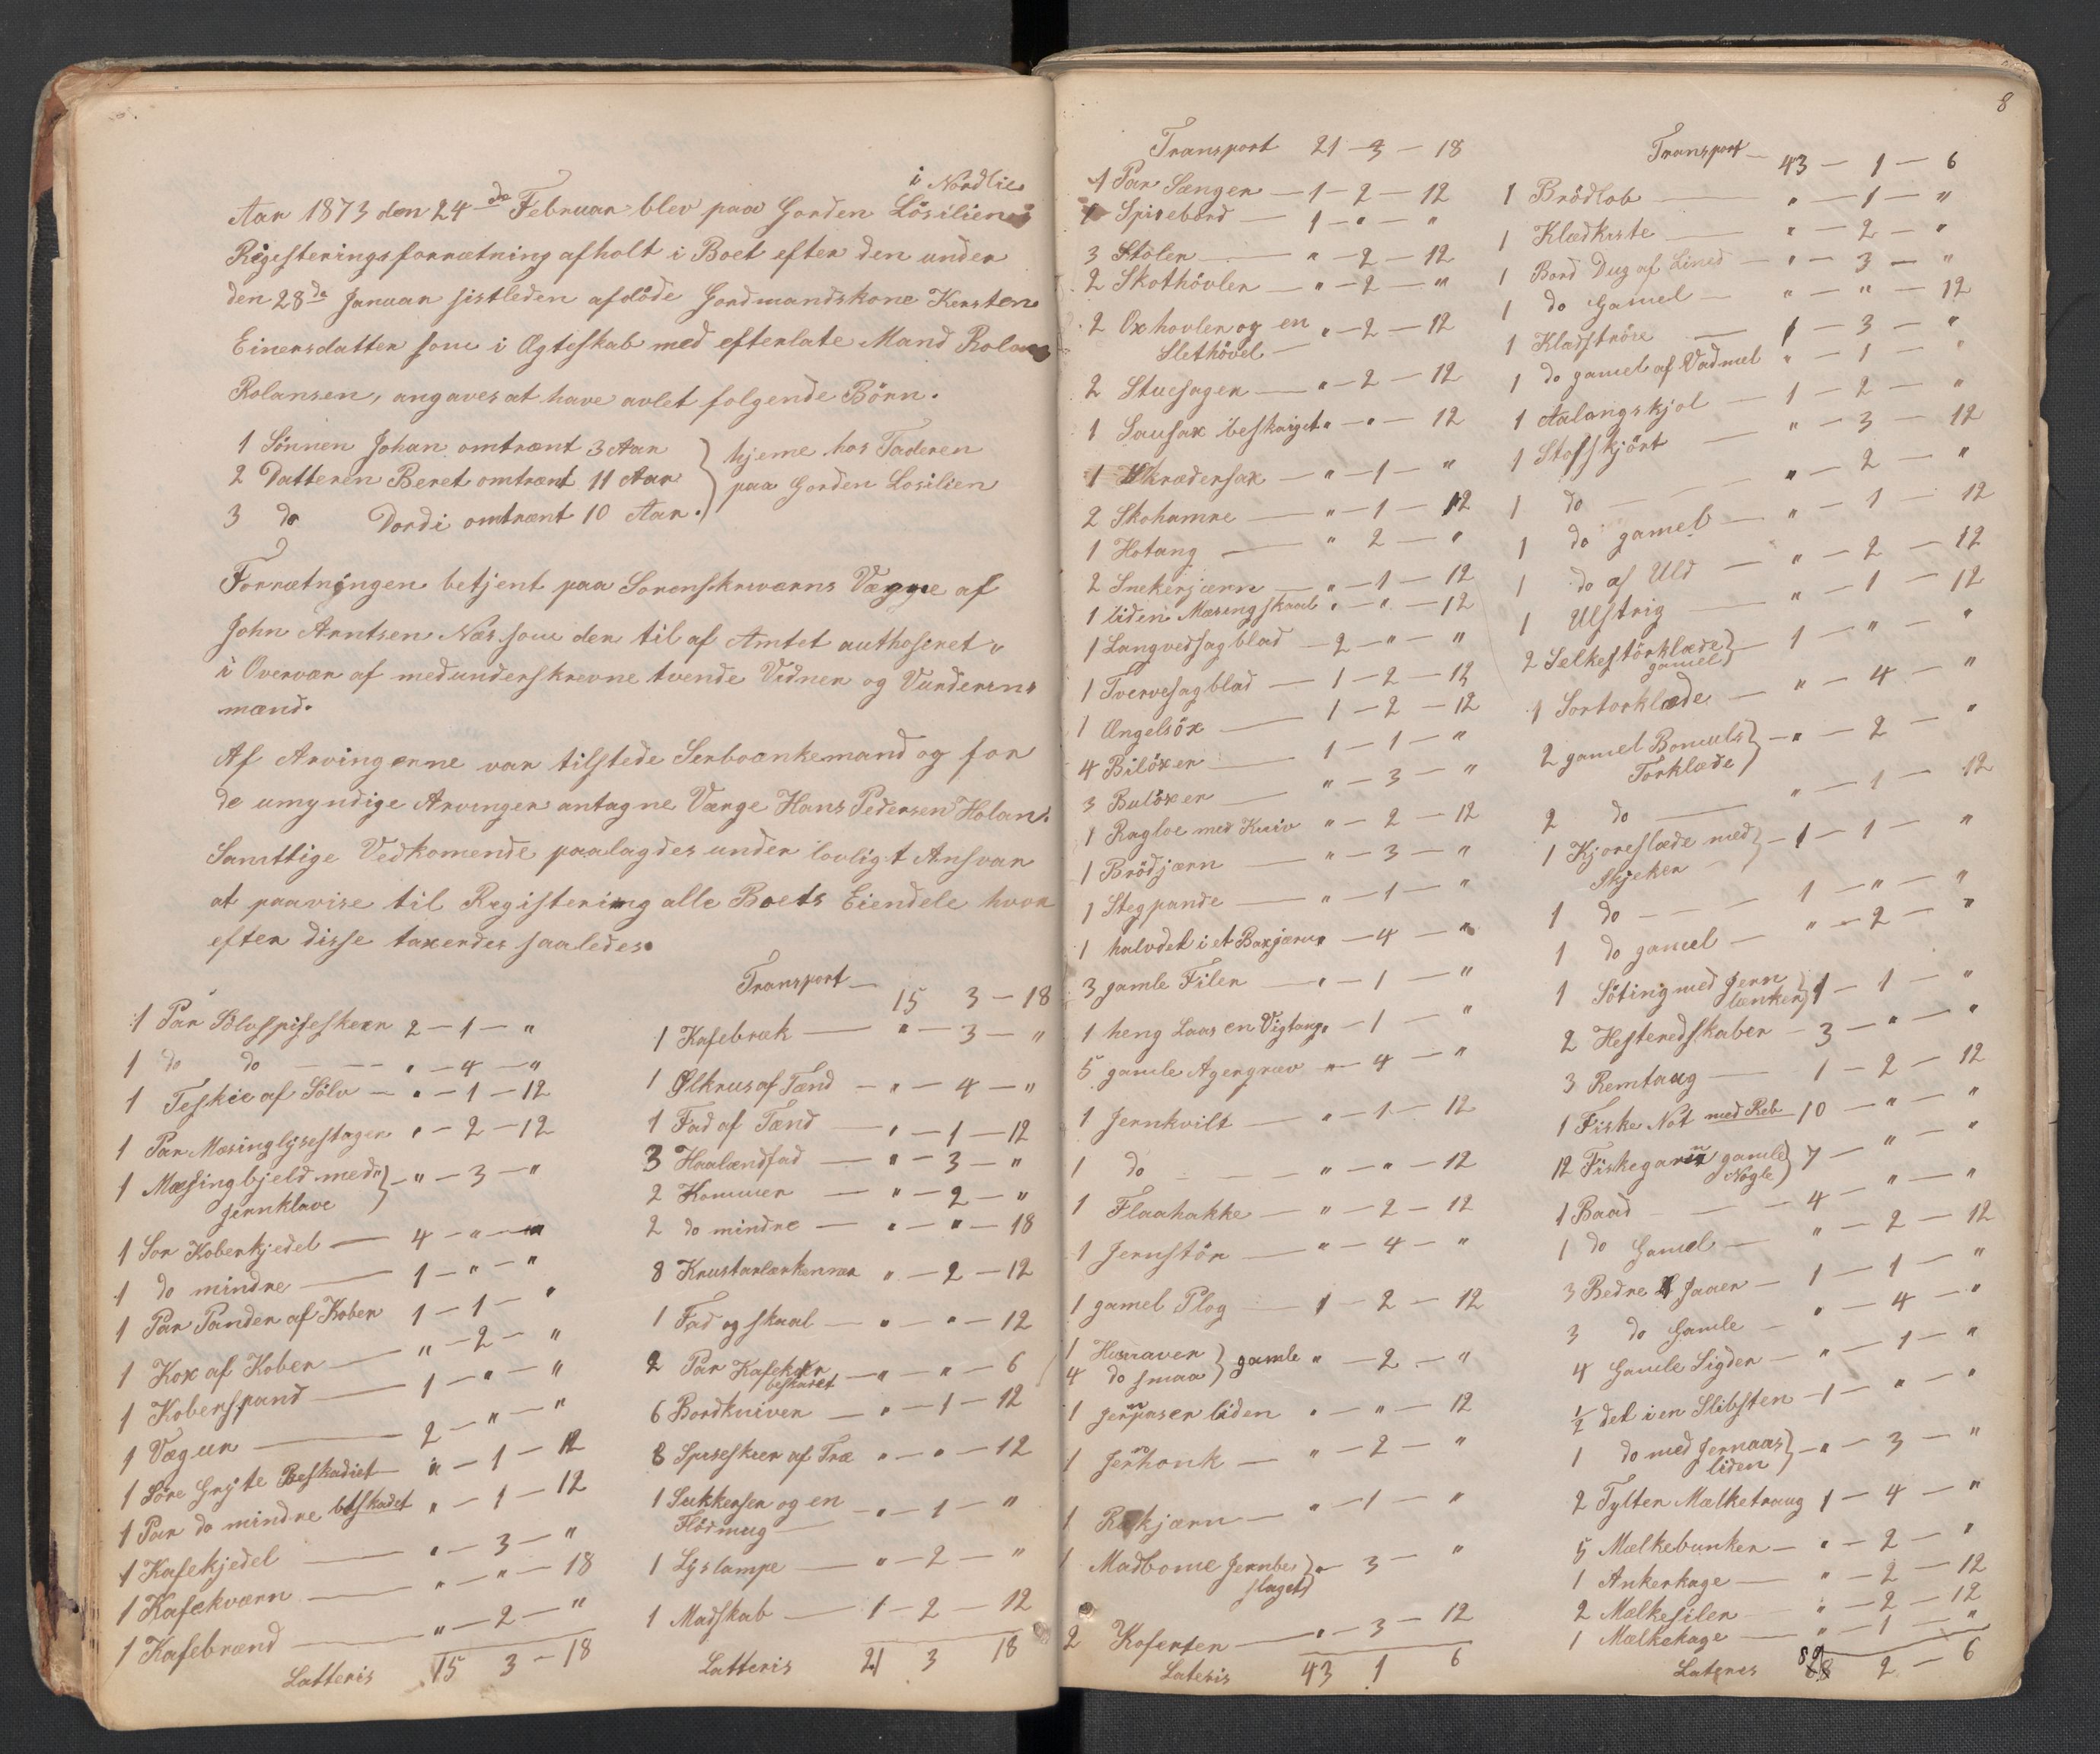 i Nordlie
Aar 1873 den 24de Februar blev paa Gorden Lösilien
Rigesteringsforrætning afholt i Boet efter den under
den 28de Januar sistleden afdöde Gordmandskone Kersten
Einersdatter som i Ægteskab med efterlate Mand Rolan
Rolansen, angaves at have avlet folgende Börn.
1 Sönnen Johan omtrænt 3 Aar } hjeme hos Faderen
2 Datteren Beret omtrænt 11 Aar } paa Gorden Losilien
3 do Dordi omtrænt 10 Aar.
Forrætningen betjent paa Sorenskrivarns Vægne af
John Arntsen Næs som der til af Amtet authoseret
i Overvær af medunderskrevne tvende Vidner og Vurderins
mænd.
Af Arvingerne var tilstede Serboænkemand og for
de umyndige Arvinger antagne Værge Hans Pedersen Holan.
Samttige Vedkomende paalagdes under lovligt Ansvar
at paavise til Registering alle Boets Eiendele hvor
efter disse taxerdes saaledes.
1 Par Sölvspiseskeer 2 – 1 – "
1 do do – " – 4 – "
1 Teskie af Sölv – " – 1 – 12
1 Par Mæsinglysestager " – 2 – 12
1 Mæsingbjeld med } – " – 3 – "
Jernklave
1 Sor Koberkjedel – 4 – " – "
1 do mindre – 1 – " – "
1 Par Pander af Kober 1 – 1 – "
1 Kox af Kober – " – 2 – "
1 Koberspand – 1 – " – "
1 Vægur – 2 – " – "
1 Söre Gryte Beskadiet – " – 1 – 12
1 Par do mindre beskadet " – 1 – 12
1 Kafekjedel – " – 3 – "
1 Kafekværn – " – " – 18
1 Kafebrænd – " – 2 – "
Latteris 15 3 – 18
Transport – 15 3 – 18
1 Kafebræk – " – 3 – "
1 Ölkrus af Tænd – " – 4 – "
1 Fad af Tænd – " – 1 – 12
3 Haalændfad – " – 3 – "
2 Kommer – " – 2 – "
2 do mindre – " – " – 18
8 Krustarlærkenner " – 2 – 12
1 Fad og skaal – " – " – 12
2 Par Kafekor – " – " – 6
beskadet
6 Bordkniver – " – 1 – 12
8 Spiseskeer af Træ " – " – 12
1 Sukkerser og en
Flödmug – " – 1 – "
1 Lyslampe – " – 2 – "
1 Madskab – 1 – 2 – 12
Latteris 21 3 18
8
Transport 21 – 3 – 18
1 Par Sænger – 1 – 2 – 12
1 Spisebord – 1 – " – "
3 Stöler – " – 2 – 12
2 Skothövler – " – 2 – "
2 Oxhovler og en " – 2 – 12
Slethövel –
2 Stuesager – " – 2 – 12
1 Sausax beskaiget " – " – 12
1 Skrædersax – " – 1 – "
2 Skohamre – " – 1 – 12
1 Hotang – " 2 – "
2 Snekerjærn – " – 1 – 12
1 liden Mæsingskaal " – " – 12
1 Langvedsagblad – 2 – " – "
1 Tvervesagblad – 1 – 2 – 12
1 Ængelsöx – 1 – 2 – 12
4 Bilöxer – 1 – 1 – "
3 Bulöxer – " – 3 – "
1 Ragloe med Kniv " – 2 – 12
1 Brödjærn – " – 3 – "
1 Stegpande – " – 1 – "
1 halvdel i et Baxjærn " – 4 – "
3 gamle Filer – " – 1 – "
1 heng Laas en Vigtang " – 1 – "
5 gamle Agergræv " – 4 – "
1 Jernkvilt – " – 1 – 12
1 do – " – " – 12
1 Flaahakke – " – 2 – 12
1 Jernstör – " – 4 – "
1 gamel Plog – 1 – 2 – 12
1 Hesraver } gamle " – 2 – "
4 do smaa
1 Jernpaser liden " – " – 12
1 Jernhonk – " – 2 – "
1 Rækjærn – " – 1 – "
1 Madbome Jernbe } " – 3 – "
slaget
2 Koferter – " – 3 – 12
Latesis 43 1 6
Transport – 43 – 1 – 6
1 Brödlob – " – 1 – "
1 Klædkiste – " – 2 – "
1 Bord Dug af Lined – " – 3 – "
1 do Gamel – " – " – 12
1 Kladströie – 1 – 3 – "
1 do gamel af Vadmel " – 1 – "
1 Aalangskjol – 1 – 2 – "
1 Stofskjört – " – 3 – 12
1 do – " – 2 – "
1 do gamel – " – 1 – 12
1 do af Uld – " – 2 – 12
1 Ulströig – " – 1 – 12
2 Selkestörklæde } – 1 – " – "
gamel
1 Sortorklæde – " – 4 – "
2 gamel Bomuls } – " – 2 – "
Torklæde
2 do – " – 1 – 12
1 Kjoreslæde med } – 1 – 1 – "
Skjeker –
1 do – 1 – " – "
1 do gamel – " – 2 – "
1 Söting med Jern } 1 – 1 – "
lænker
2 Hesteredskaber – 3 – " – "
3 Remtaug – 1 – 2 – 12
1 Fiske Not med Reb – 10 – " – "
12 Fiskegarn gamle } 7 – " – "
Nogle
1 Baad – 4 – " – "
1 do Gamel – " – 2 – 12
3 Bedre Ljaaer – 1 – 1 – "
3 do Gamle – " – 4 – "
4 Gamle Sigder – " – 1 – "
1/2 del i en Slibsten – 1 – " – "
1 do med Jernaas } – " – 3 – "
liden
2 Tylter Mælketraug 1 – 4 – "
5 Mælkebunker – " – 2 – "
1 Ankerkage – " – 2 – 12
2 Mælkesiler – " – 2 – 12
1 Mælkekage – " – 1 – "
Lateres 89 2 – 6